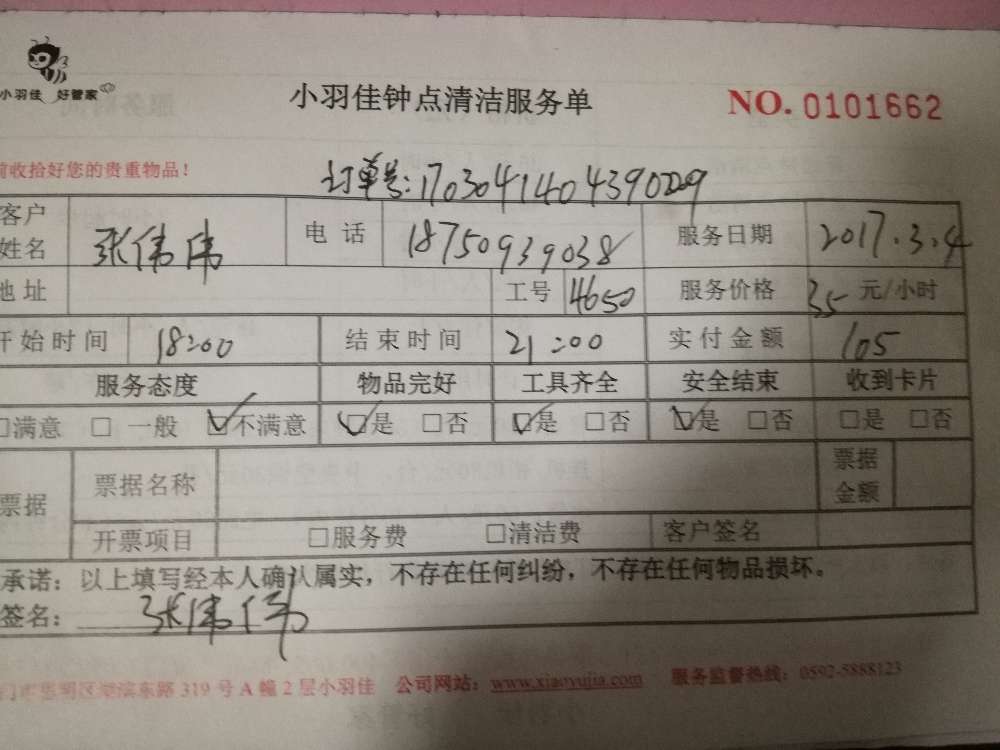 小羽佳 好管家
小羽佳钟点清洁服务单 NO. 0101662
前收拾好您的贵重物品！
订单号：1703041404390229
客户姓名 张伟伟 电话 18750939038 服务日期 2017.3.4
地址 工号 4650 服务价格 35 元/小时
开始时间 18:00 结束时间 21:00 实付金额 105
服务态度 物品完好 工具齐全 安全结束 收到卡片
□满意 □ 一般 ☑不满意 ☑是 □否 ☑是 □否 ☑是 □否 □是 □否
票据 票据名称 票据金额
开票项目 □服务费 □清洁费 客户签名
承诺：以上填写经本人确认属实，不存在任何纠纷，不存在任何物品损坏。
签名：张伟伟
门市思明区湖滨东路 319 号 A 幢 2 层小羽佳 公司网站：www.xiaoyujia.com 服务监督热线：0592-5888123